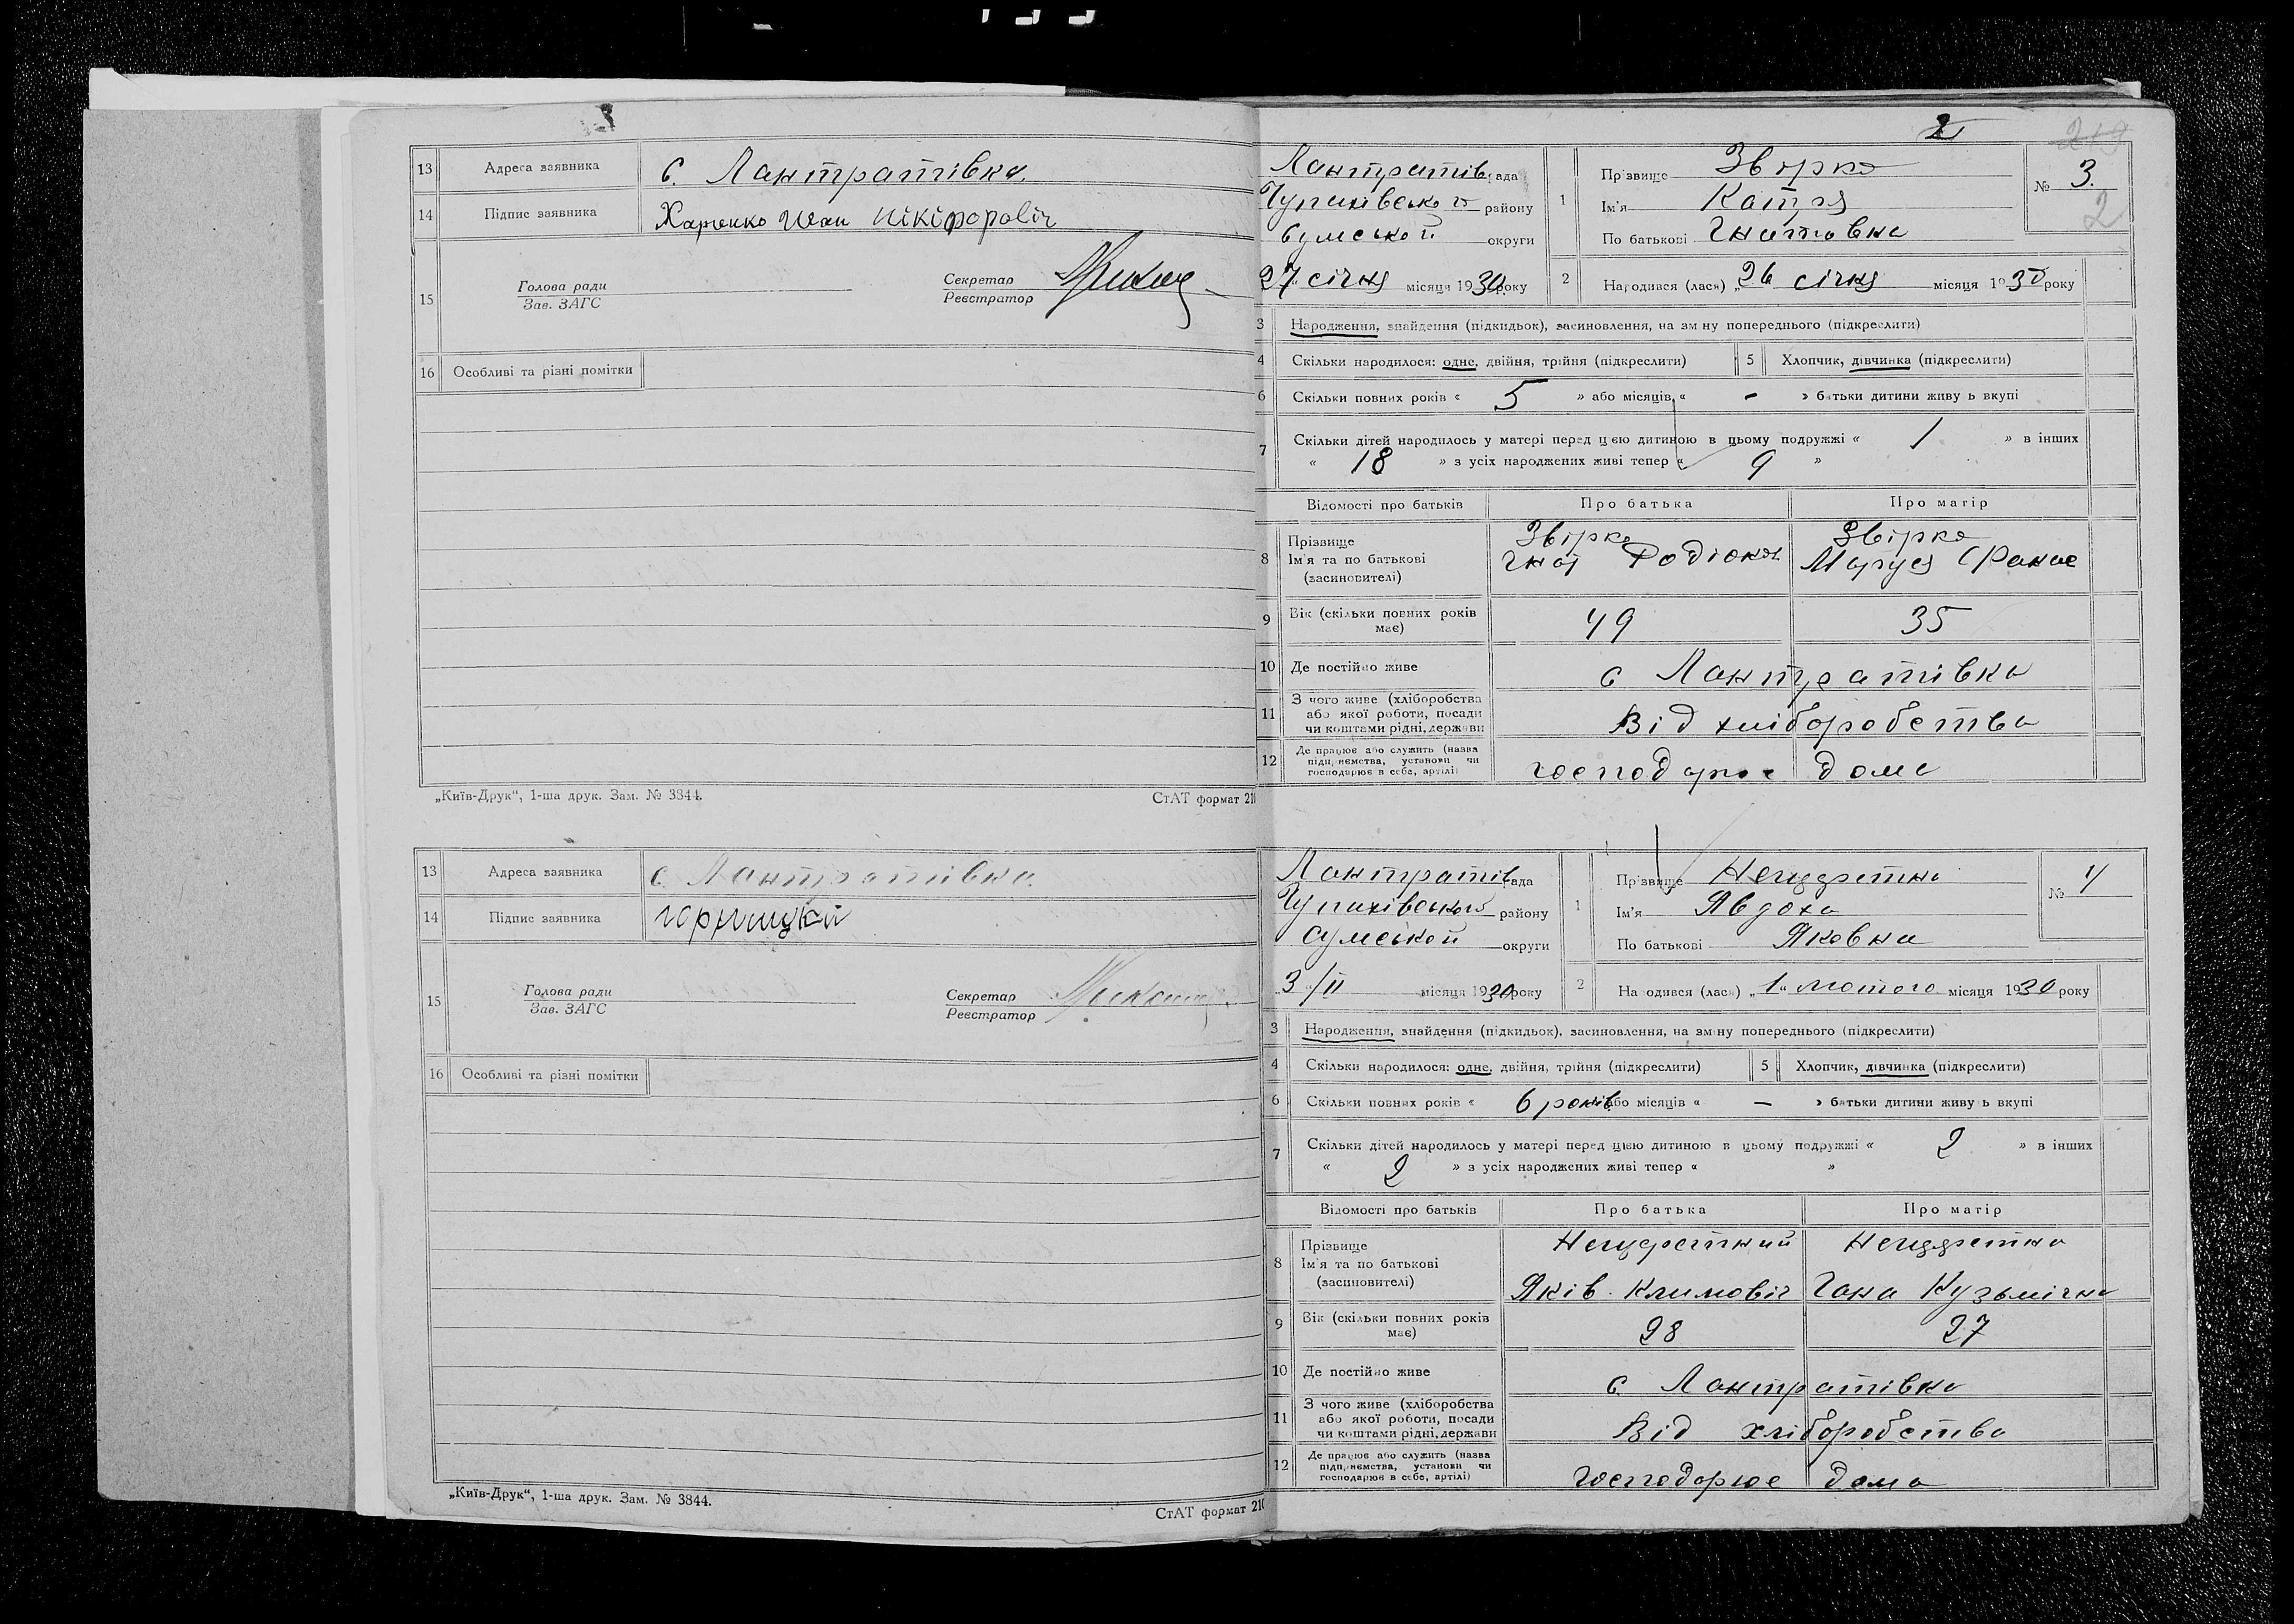 3
13 Адреса заявника с. Лантратівка.
14 Підпис заявника Харченко Иван Нікіфоровіч
15 Голова ради Секретар
Зав. ЗАГС Реєстратор
16 Особливі та різні помітки
„Київ-Друк“, 1-ша друк. Зам. № 3844. СтАТ формат 210
13 Адреса заявника с. Лантратівка.
14 Підпис заявника
15 Голова ради Секретар
Зав. ЗАГС Реєстратор
16 Особливі та різні помітки
„Київ-Друк“, 1-ша друк. Зам. № 3844. СтАТ формат 210
2 219
Лантратів рада 1 Прізвище Звірко № 3.
Чупахівського району Ім'я Катря 2
Сумської округи По батькові Гнатовна
27 січня місяця 1930 року 2 Народився (лася) „26 січня місяця 1930 року
3 Народження, знайдення (підкидьок), засиновлення, на зміну попереднього (підкреслити)
4 Скільки народилося: одне, двійня, трійня (підкреслити) 5 Хлопчик, дівчинка (підкреслити)
6 Скільки повних років « 5 » або місяців « - » батьки дитини живуть вкупі
7 Скільки дітей народилось у матері перед цією дитиною в цьому подружжі « 1 » в інших
« 18 » з усіх народжених живі тепер « 9 »
Відомості про батьків Про батька Про матір
8 Прізвище Звірко Звірко
Ім'я та по батькові Гнат Родіонов Маруся Фанас
(засиновителі)
9 Вік (скільки повних років має) 49 35
10 Де постійно живе с Лантратівка
11 З чого живе (хліборобства
або якої роботи, посади Від хліборобства
чи коштами рідні, держави
12 Де працює або служить (назва
підприємства, установи чи господарює дома
господарює в себе, артілі)
Лантратів рада 1 Прізвище № 4
Чупахівського району Ім'я Явдоха
Сумської округи По батькові Яковна
3/II місяця 1930 року 2 Народився (лася) „1“ лютого місяця 1930 року
3 Народження, знайдення (підкидьок), засиновлення, на зміну попереднього (підкреслити)
4 Скільки народилося: одне, двійня, трійня (підкреслити) 5 Хлопчик, дівчинка (підкреслити)
6 Скільки повних років « 6 років або місяців « - » батьки дитини живуть вкупі
7 Скільки дітей народилось у матері перед цією дитиною в цьому подружжі « 2 » в інших
« 2 » з усіх народжених живі тепер « »
Відомості про батьків Про батька Про матір
8 Прізвище
Ім'я та по батькові Яків Климовіч Гана Кузьмічна
(засиновителі)
9 Вік (скільки повних років має) 28 27
10 Де постійно живе с. Лантратівка
11 З чого живе (хліборобства
або якої роботи, посади Від хліборобства
чи коштами рідні, держави
12 Де працює або служить (назва
підприємства, установи чи господорює дома
господарює в себе, артілі)